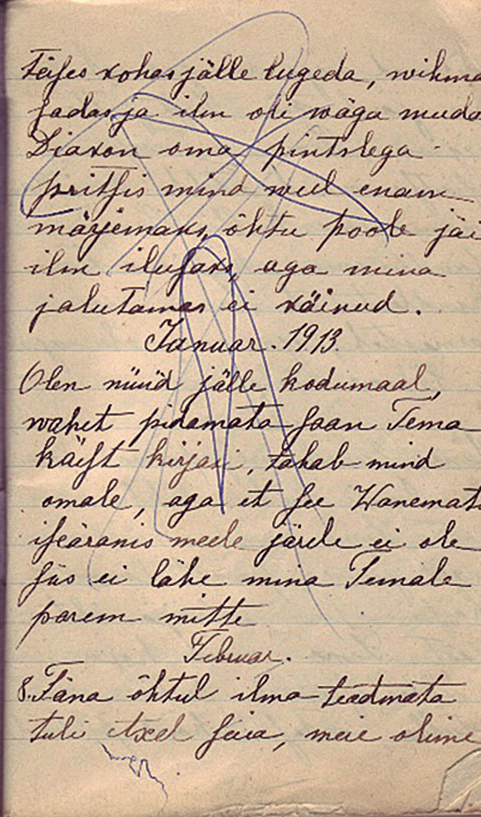 Teises kohas jälle lugeda, wihma
sadas ja ilm oli wäga muda
Diakon oma pintslega
pritsis mind weel enam
märjemaks, õhtu poole jäi
ilm ilusaks, aga mina
jalutamas ei käinud.
Januar. 1913
Olen nüüd jälle kodumaal,
wahet pidamata saan Tema
käist kirjasi, tahab mind
omale, aga et see Wanemate
iseäranis meele järele ei ole
siis ei lähe mina Temale
parem mitte
Februar.
8. Täna õhtul ilma teadmata
tuli siia, meie olime